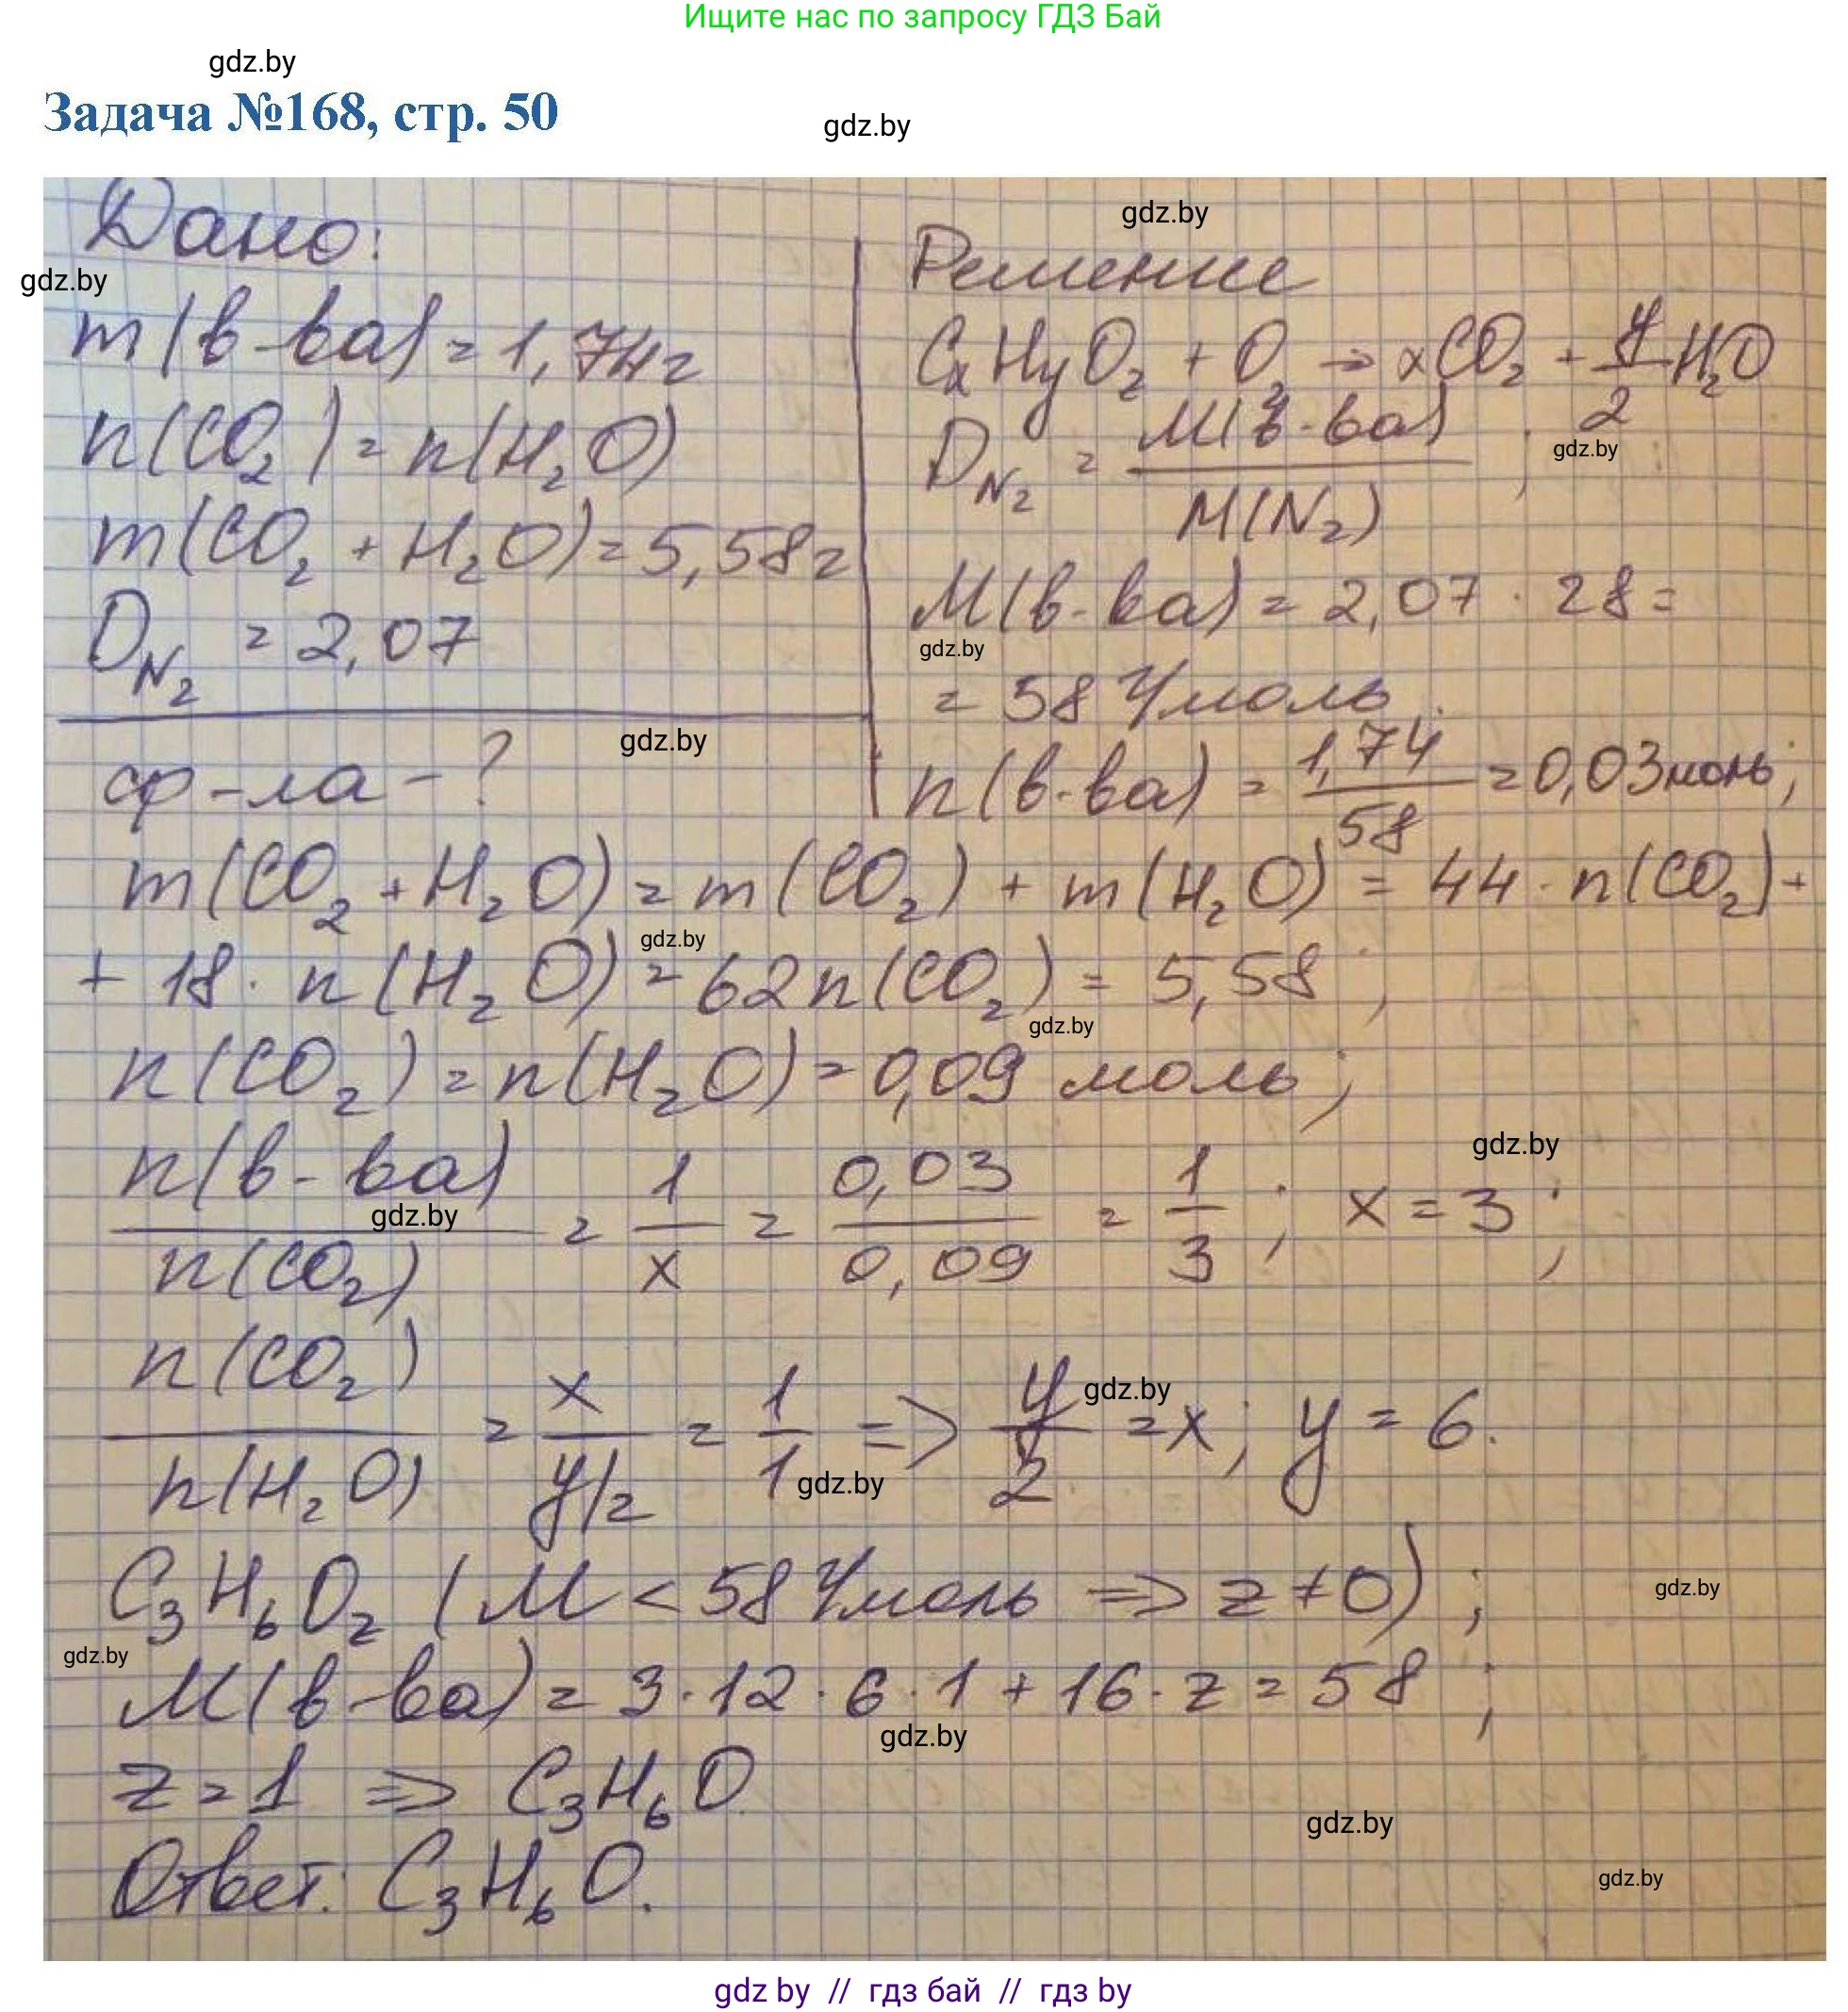 Ищите нас по запросу ГДЗ Бай
gdz.by
Задача №168, стр. 50
gdz.by
Дано:
gdz.by
m(в-ва) = 1,74г
n(CO₂) = n(H₂O)
m(CO₂ + H₂O) = 5,58г
D_N₂ = 2,07
gdz.by
ф-ла - ?
gdz.by
Решение
CₓHyOz + O₂ → xCO₂ + y/2 H₂O
D_N₂ = M(в-ва) / M(N₂) ;
gdz.by
M(в-ва) = 2,07 · 28 =
gdz.by
= 58 г/моль.
n(в-ва) = 1,74 / 58 = 0,03моль;
m(CO₂ + H₂O) = m(CO₂) + m(H₂O) = 44 · n(CO₂) +
gdz.by
+ 18 · n(H₂O) = 62n(CO₂) = 5,58 ;
gdz.by
n(CO₂) = n(H₂O) = 0,09 моль ;
gdz.by
n(в-ва) / n(CO₂) = 1/x = 0,03 / 0,09 = 1/3 ; x = 3 ;
gdz.by
n(CO₂) / n(H₂O) = x / y/2 = 1/1 => y/2 = x ; y = 6.
gdz.by
gdz.by
C₃H₆Oz (M < 58 г/моль => z ≠ 0) ;
gdz.by
gdz.by
M(в-ва) = 3 · 12 · 6 · 1 + 16 · z = 58 ;
gdz.by
z = 1 => C₃H₆O.
gdz.by
Ответ: C₃H₆O.
gdz.by
gdz by // гдз бай // гдз by